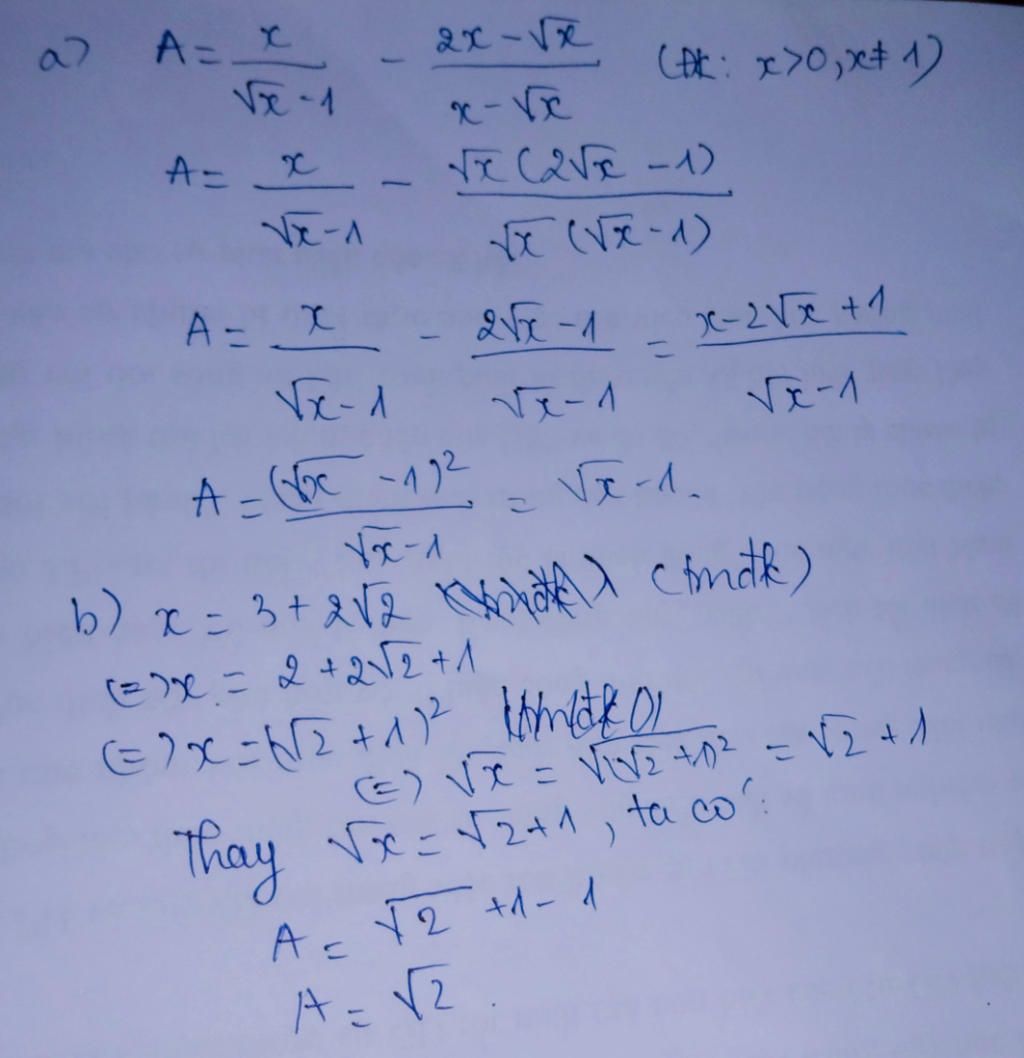 a) A = x/(√x - 1) - (2x - √x)/(x - √x) (đk: x>0, x≠1)
A = x/(√x - 1) - √x(2√x - 1)/(√x(√x - 1))
A = x/(√x - 1) - (2√x - 1)/(√x - 1) = (x - 2√x + 1)/(√x - 1)
A = (√x - 1)²/(√x - 1) = √x - 1.
b) x = 3 + 2√2 (tmđk)
(=) x = 2 + 2√2 + 1
(=) x = (√2 + 1)²
(=) √x = √((√2 + 1)²) = √2 + 1
Thay √x = √2 + 1, ta có:
A = √2 + 1 - 1
A = √2.